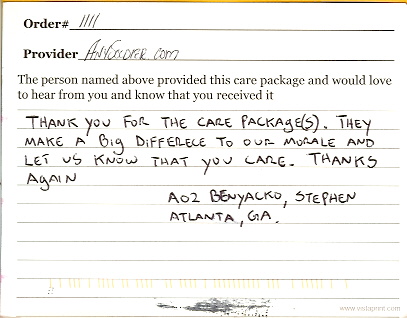 Order# 1111
Provider AnySoldier.com
The person named above provided this care package and would love
to hear from you and know that you received it
THANK YOU FOR THE CARE PACKAGE(S). THEY
MAKE A BIG DIFFERECE TO OUR MORALE AND
LET US KNOW THAT YOU CARE. THANKS
AGAIN
AO2 BENYACKO, STEPHEN
ATLANTA, GA.
www.vistaprint.com